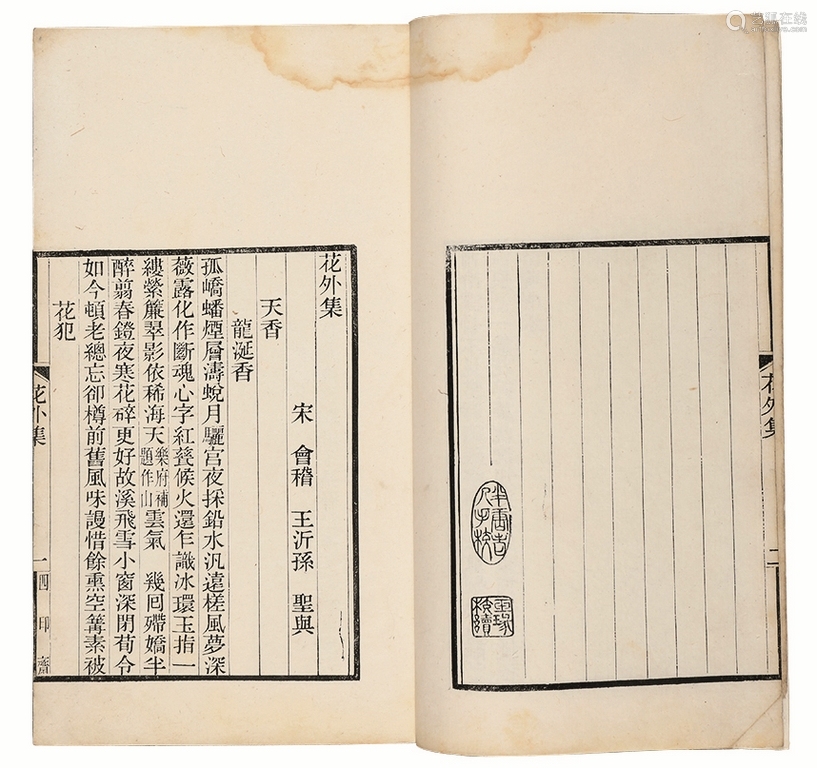 花外集
二
花外集
宋 會稽 王沂孫 聖與
天香
龍涎香
孤嶠蟠煙層濤蛻月驪宮夜採鉛水汎遠槎風夢深
薇露化作斷魂心字紅甆候火還乍識冰環玉指一
縷縈簾翠影依稀海天樂府補題作山雲氣 幾囘殢嬌半
醉翦春鐙夜寒花碎更好故溪飛雪小窗深閉荀令
如今頓老總忘卻樽前舊風味謾惜餘熏空篝素被
花犯
花外集
一
四印齋